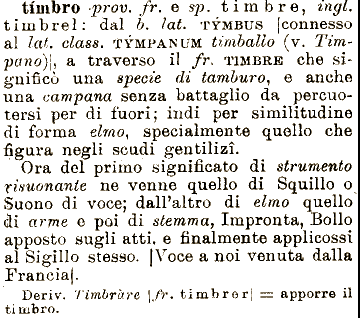 tímbro prov. fr. e sp. timbre, ingl.
timbrel: dal b. lat. TỲMBUS [connesso
al lat. class. TÝMPANUM timballo (v. Tim-
pano)], a traverso il fr. TIMBRE che si-
gnificò una specie di tamburo, e anche
una campana senza battaglio da percuo-
tersi per di fuori; indi per similitudine
di forma elmo, specialmente quello che
figura negli scudi gentilizî.
Ora del primo significato di strumento
risuonante ne venne quello di Squillo o
Suono di voce; dall'altro di elmo quello
di arme e poi di stemma, Impronta, Bollo
apposto sugli atti, e finalmente applicossi
al Sigillo stesso. [Voce a noi venuta dalla
Francia].
Deriv. Timbràre [fr. timbrer] = apporre il
timbro.